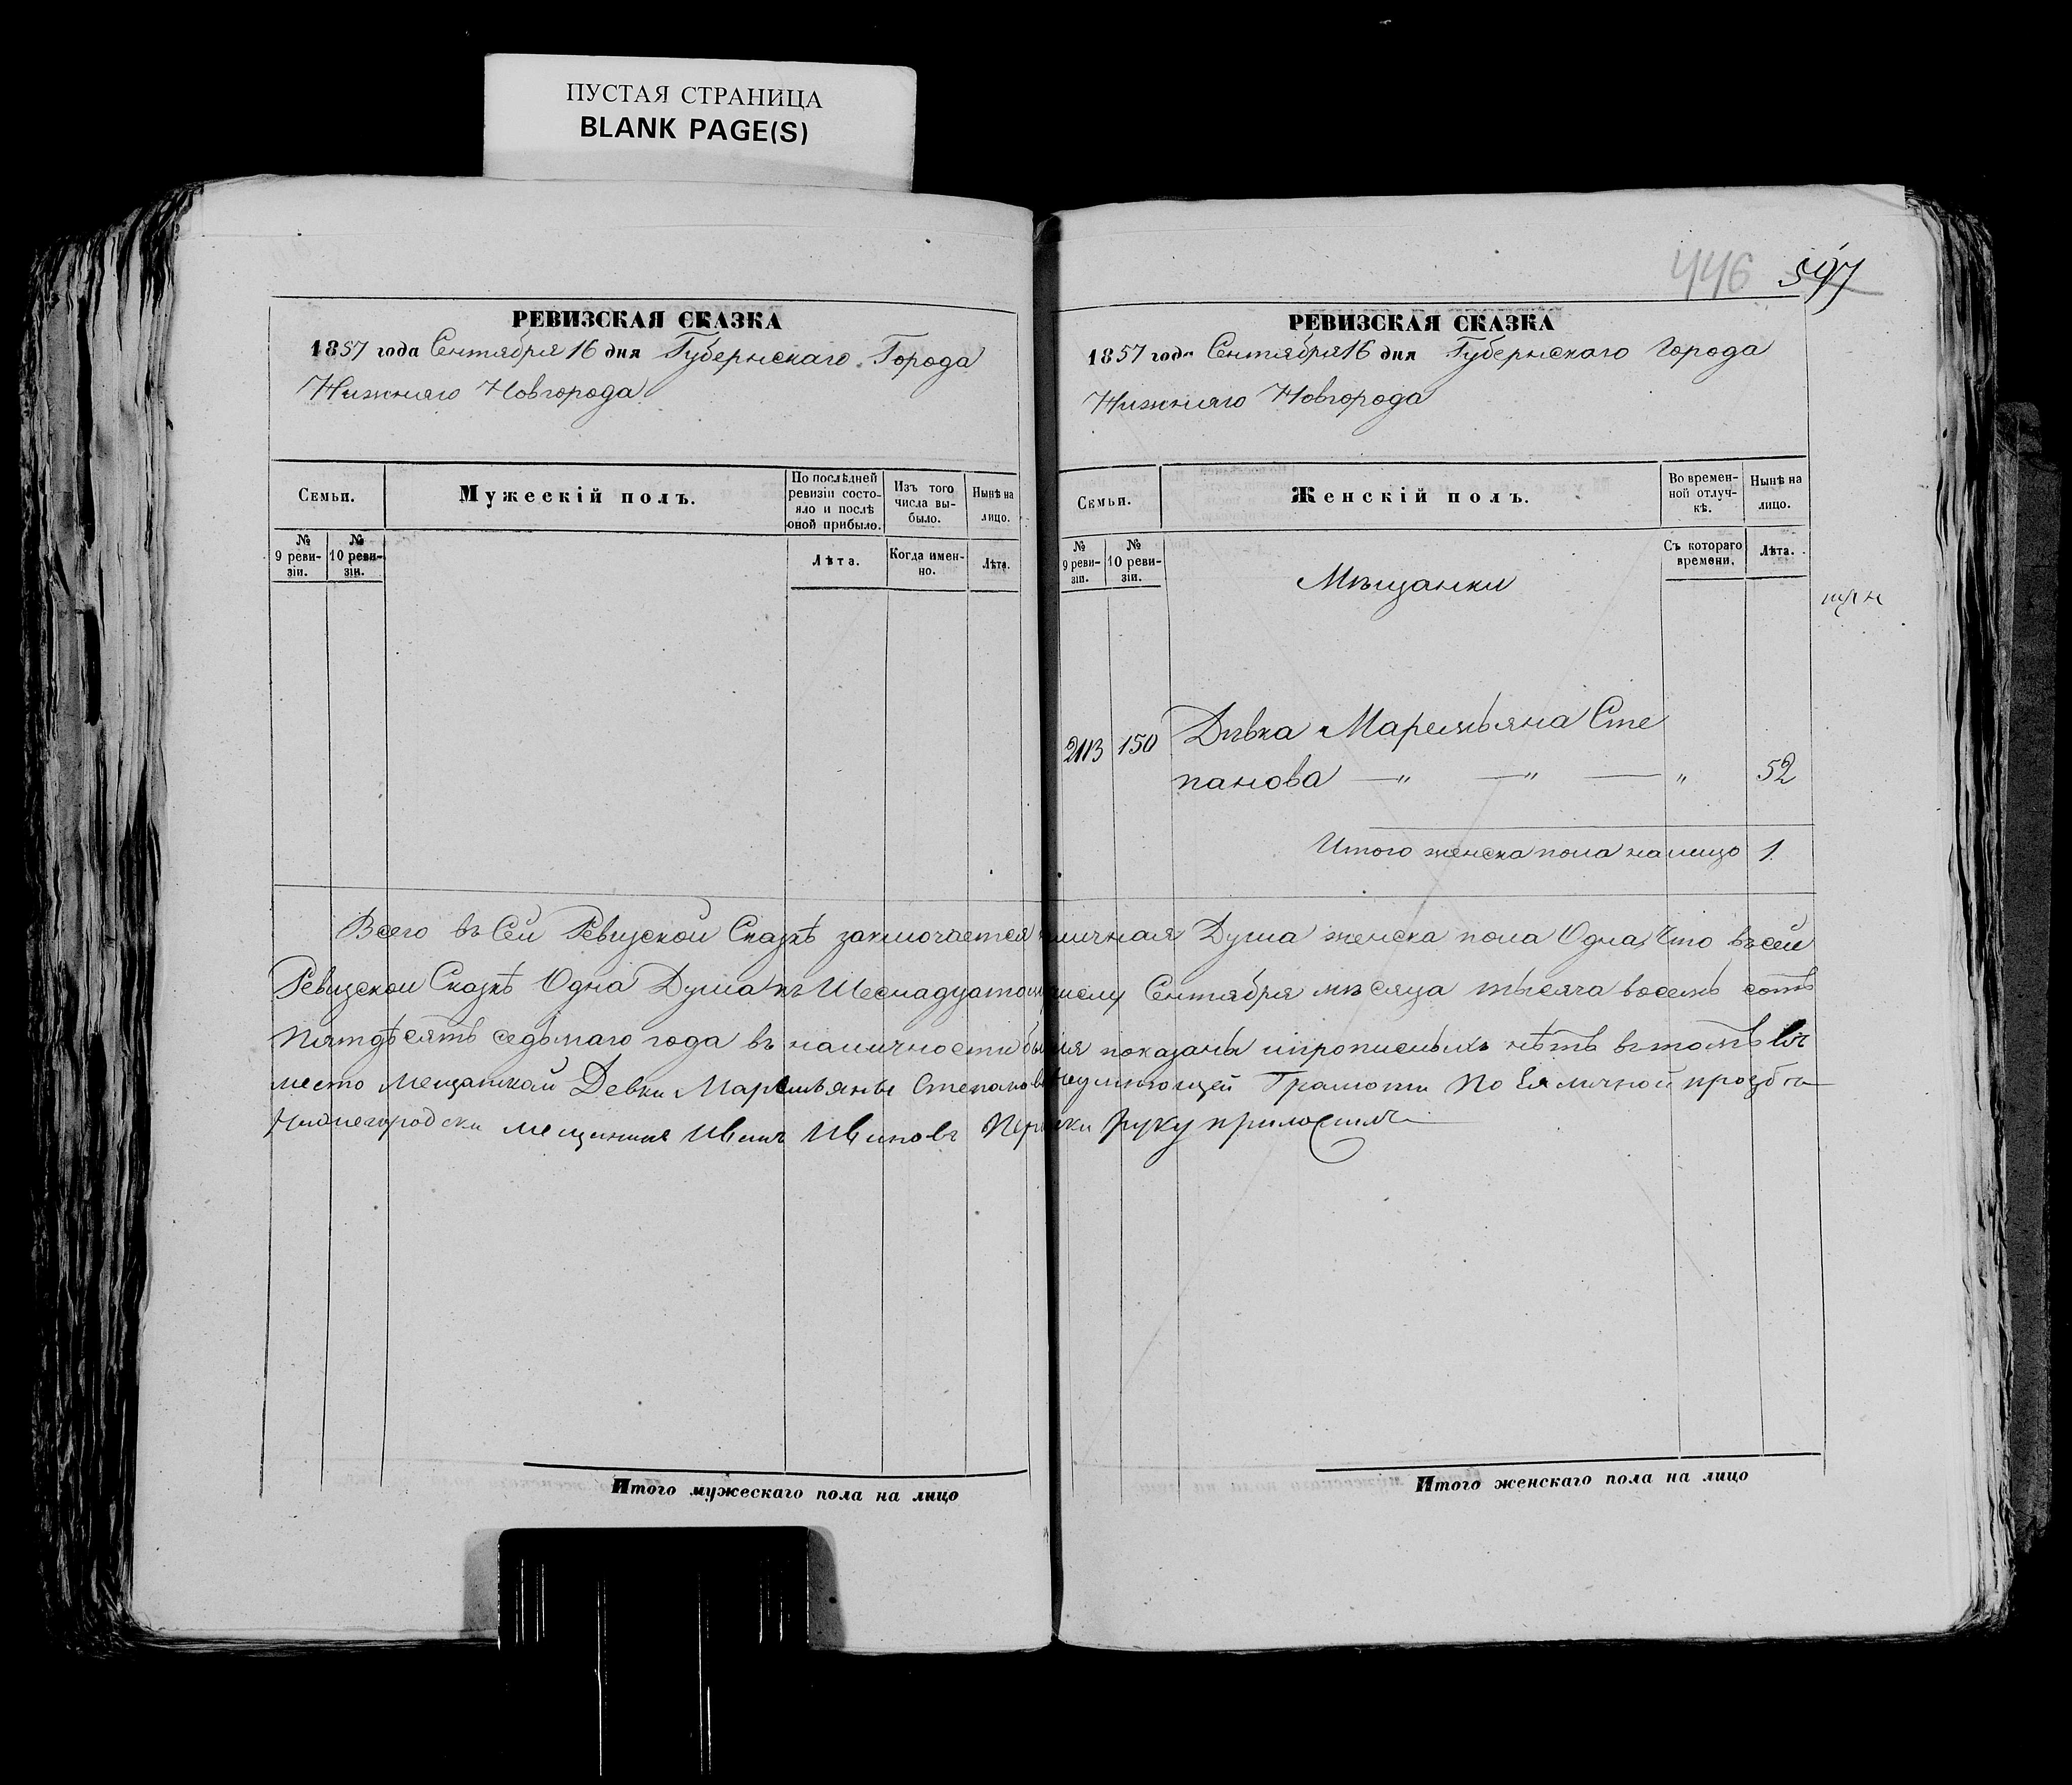 ПУСТАЯ СТРАНИЦА
BLANK PAGE(S)
РЕВИЗСКАЯ СКАЗКА
1857 года Сентября 16 дня Губернскаго Города
Нижняго Новгорода
Семьи.
Мужескій полъ.
По послѣдней
ревизіи состо-
яло и послѣ
оной прибыло.
Изъ того
числа вы-
было.
Нынѣ на
лицо.
№
9 реви-
зіи.
№
10 реви-
зіи.
Лѣта.
Когда имен-
но.
Лѣта.
446 597
РЕВИЗСКАЯ СКАЗКА
1857 года Сентября 16 дня Губернскаго Города
Нижняго Новгорода
Семьи.
Женскій полъ.
Во времен-
ной отлуч-
кѣ.
Нынѣ на
лицо.
№
9 реви-
зіи.
№
10 реви-
зіи.
Съ котораго
времени.
Лѣта.
Мѣщанки
2113 150 Дѣвка Маремьяна Сте
панова — „ — „ — „ 52
Итого женска пола налицо 1.
Всего въ Сей Ревизской Сказкѣ заключается наличная Душа женска пола Одна, Что въ сей
Ревизской Сказкѣ Одна Душа къ Шеснадцатому числу Сентября мѣсяца тысяча восемь сотъ
Пятдѣсятъ седьмаго года въ наличности бывшая показаны и прописныхъ нѣтъ въ томъ въ
место мещанкай Девки Маремьяны Степановой неумѣющей Грамоти по Ея личной прозбѣ
Нижнегородски мещининъ Иванъ Ивановъ руку приложилъ
Итого мужескаго пола на лицо
Итого женскаго пола на лицо